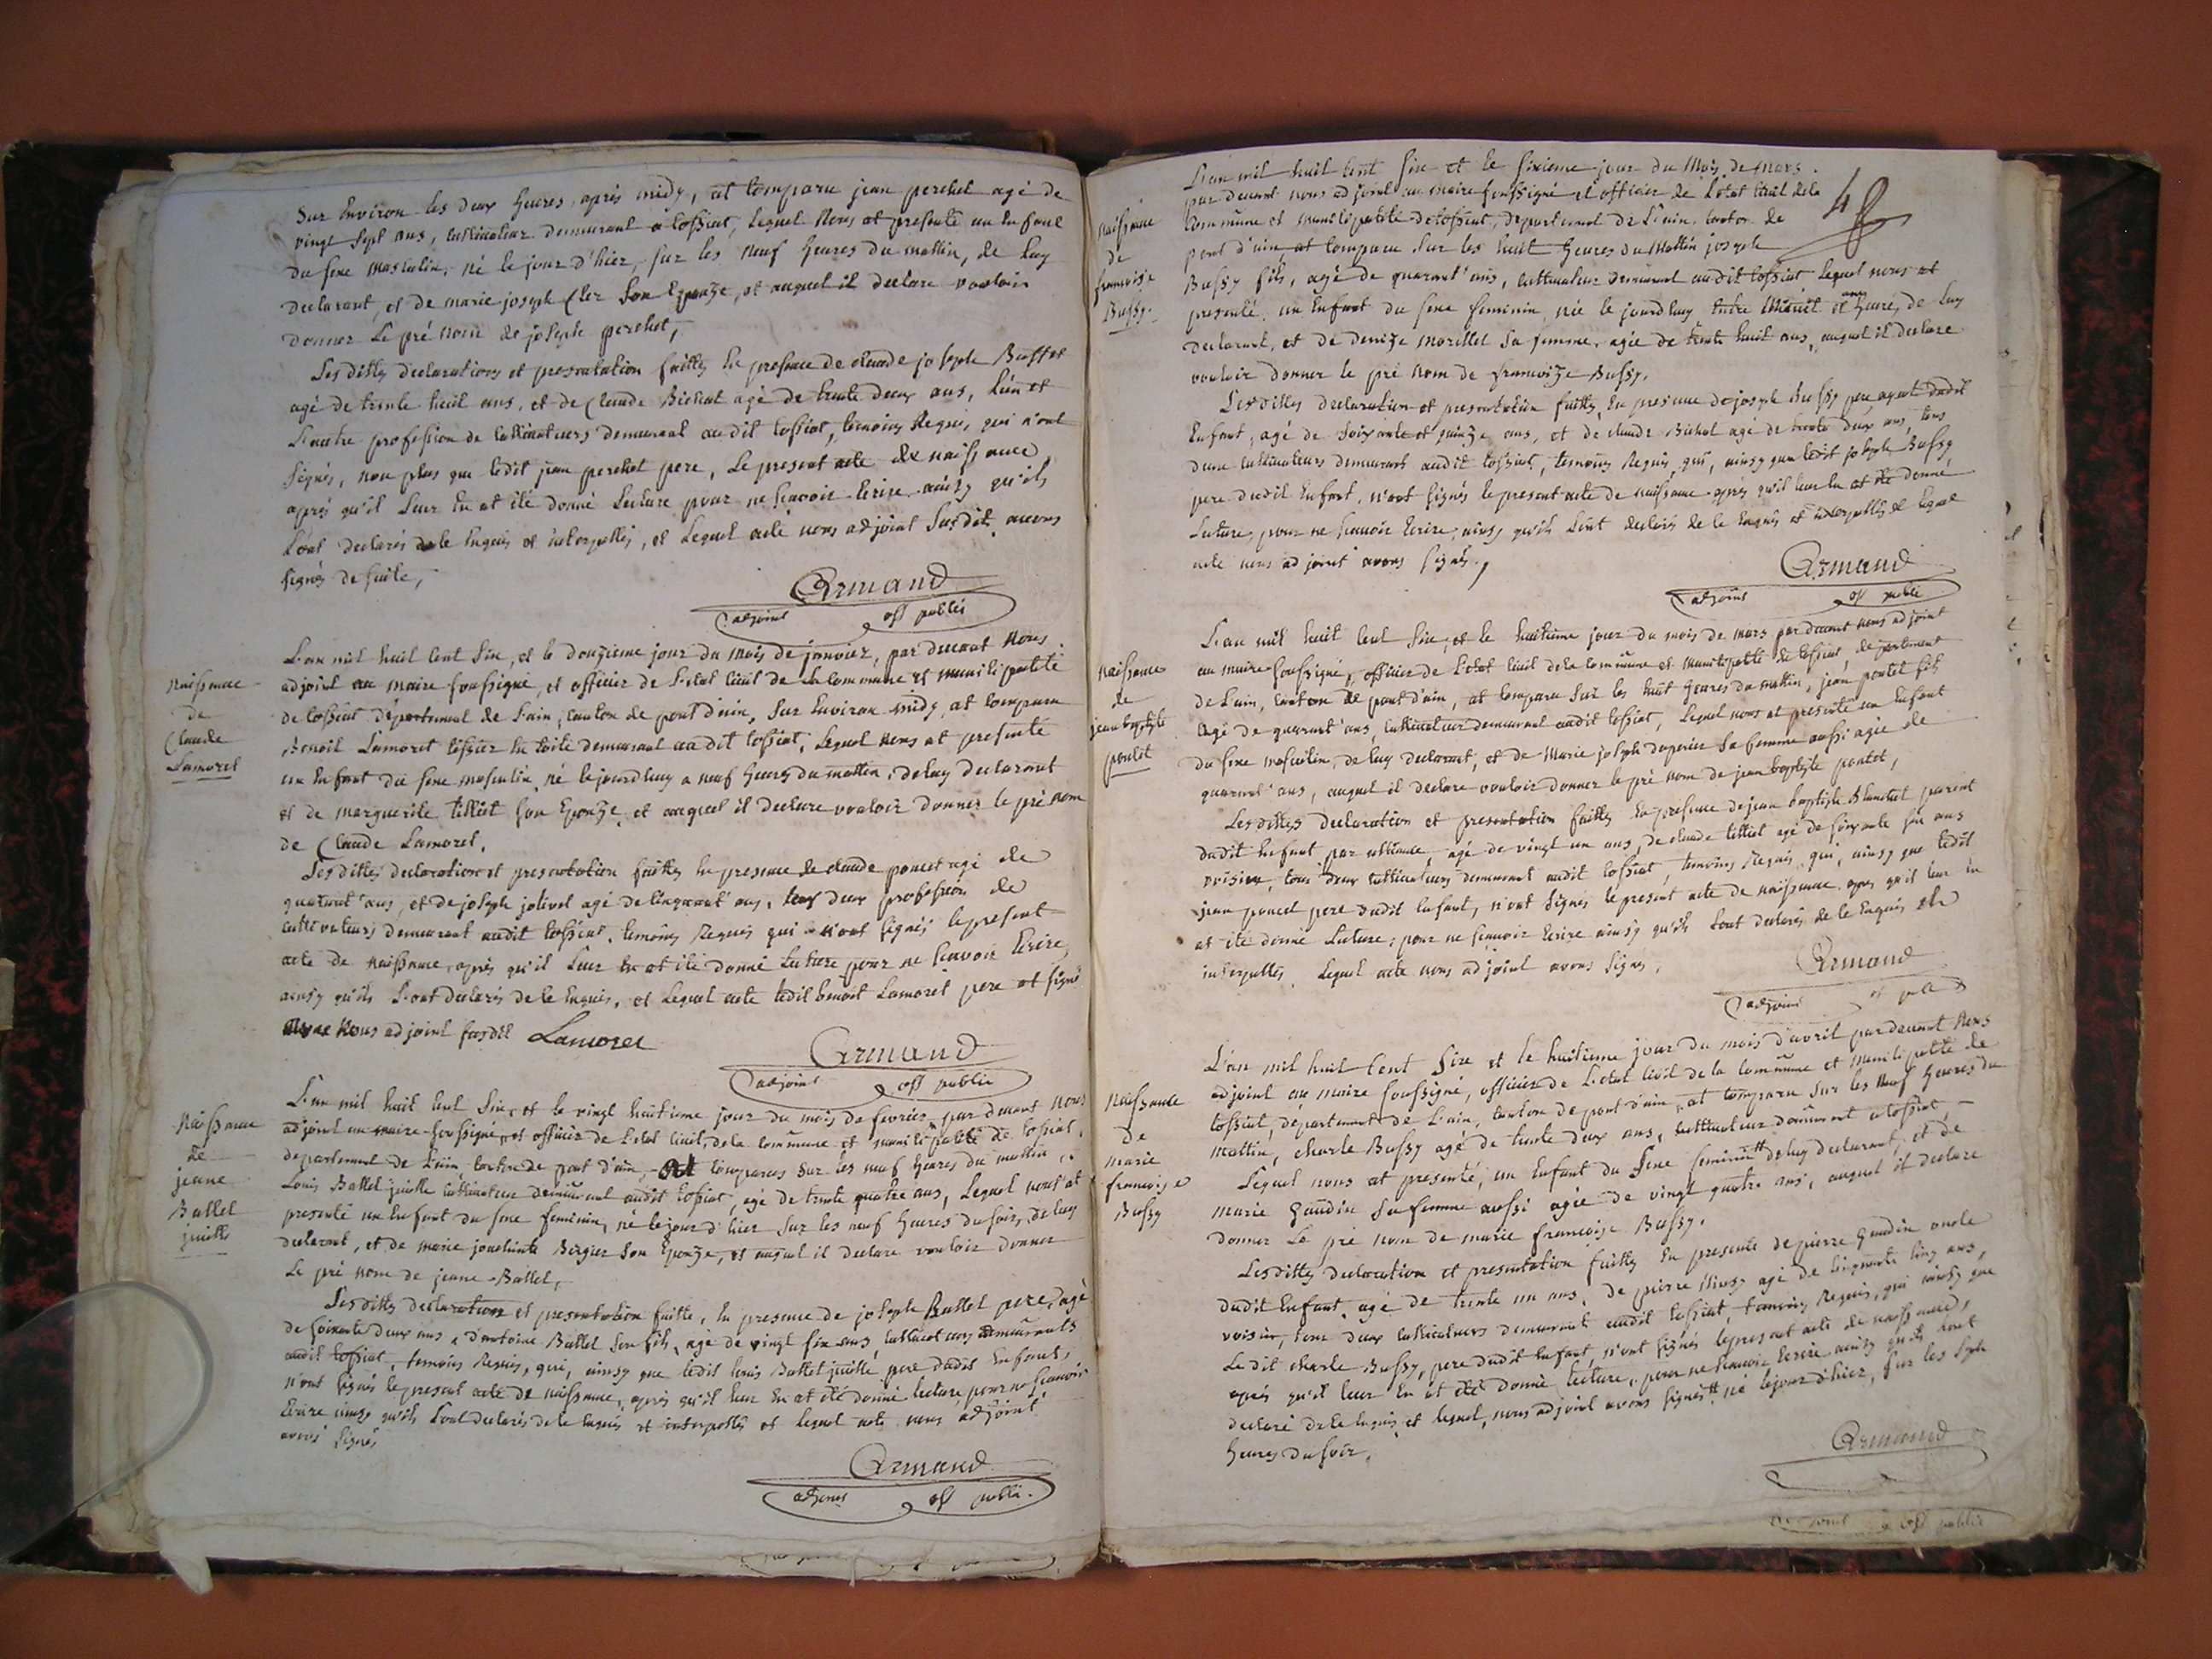 Sur Environ les deux heures après midy, at Comparu jean perchet agé de
vingt sept ans, Cultivateur demeurant a tossiat, Lequel Nous at presenté un Enfant
du sexe masculin, né le jour d'hier, sur les neuf heures du mattin, de Luy
declarant, et de marie joseph Cler Son Epouze, et auquel il declare vouloir
donner Le pré nom de joseph perchet,
Les dittes declarations et presentation faittes En presence de claude joseph Buffet
agé de trente huit ans, et de Claude Bichat agé de trente deux ans, L'un et
L'autre profession de Cultivateurs demeurant au dit tossiat, temoins Requis, qui n'ont
Signés, non plus que ledit jean perchet pere, Le present acte de naissance,
après qu'il Leur En at été donné Lecture pour ne sçavoir Ecrire ainsy qu'ils
L'ont declarés de le Enquis et interpellés, et Lequel acte nous adjoint Susdit, avons
signés de suite,
Armand
adjoint off public
Naissance
de
Claude
Lamoret
L'an mil huit Cent Six, et le douzieme jour du mois de janvier, par devant Nous
adjoint au maire soussigné, et officier de L'etat Civil de la Commune et municipalité
de tossiat département de L'ain, Canton de pont d'ain, Sur Environ midy, at Comparu
Benoit Lamoret tissier En toile demeurant audit tossiat, Lequel Nous at presenté
un Enfant du sexe masculin né le jourdhuy a neuf heures du mattin, de luy declarant
et de marguerite tilliet son Epouze, et auquel il declare vouloir donner le pré nom
de Claude Lamoret.
Les dittes declaration et presentation faittes En presence de claude poncet agé de
quarant'ans, et de joseph jolivet agé de Cinquant'ans, tous deux profession de
cultivateurs demeurant audit tossiat, temoins Requis qui n'ont signés le present
acte de naissance, après qu'il Leur En at été donné Lecture pour ne sçavoir Ecrire,
ainsy qu'ils L'ont declarés de le Enquis, et Lequel acte ledit benoit Lamoret pere at signé
avec Nous adjoint susdit Lamoret
Armand
adjoint off public
Naissance
de
jeane
Ballet
juitte
L'an mil huit Cent Six, et le vingt huitieme jour du mois de fevrier, par devant Nous
adjoint au maire soussigné, et officier de L'etat Civil, de la commune et municipalité de tossiat,
departement de L'ain Canton de pont d'ain, at comparus sur les neuf heures du mattin,
Louis Ballet juitte Cultivateur demeurant audit tossiat, agé de trente quatre ans, Lequel nous at
presenté un Enfant du sexe feminin, né le jour d'hier Sur les neuf heures du soir, de luy
declarant, et de marie Bergier Son Epouze, et auquel il declare vouloir donner
Le pré nom de jeane Ballet,
Les dittes declaration et presentation faitte, En presence de joseph Ballet pere, agé
de soixante deux ans d'antoine Ballet Son fils, agé de vingt six ans, Cultivateurs demeurants
audit tossiat, temoins Requis, qui, ainsy que ledit louis Ballet juitte pere dudit Enfant,
n'ont signés le present acte de naissance, après qu'il leur En at été donné lecture, pour ne sçavoir
Ecrire ainsy qu'ils L'ont declarés de le Enquis et interpellés et lequel acte nous adjoint
avons signés
Armand
adjoint off public
48
Naissance
de
francoise
Bussy
L'an mil huit Cent Six et le sixieme jour du Mois de Mars.
par devant nous adjoint au maire soussigné et officier de L'etat Civil de la
Commune et municipalité de tossiat, departement de L'ain, Canton de
pont d'ain, at Comparu Sur les huit heures du Mattin joseph
Bussy fils, agé de quarant'ans, Cultivateur demeurant audit tossiat Lequel nous at
presenté, un Enfant du sexe feminin, née le jourdhuy Entre Minuit et une heure, de Luy
declarant, et de denize Morillet Sa femme, agée de trente huit ans, auquel il declare
vouloir donner le pré nom de francoize Bussy.
Les dittes declaration et presentation faittes, En presence de joseph Bussy dudit
Enfant, agé de Soixante et quinze ans, et de claude Bichat agé de trente deux ans, tous
deux Cultivateurs demeurant audit tossiat, temoins Requis qui, ainsy que ledit joseph Bussy
pere dudit Enfant, n'ont signés le present acte de naissance après qu'il leur En at été donné
Lecture, pour ne sçavoir Ecrire, ainsy qu'ils L'ont declarés de le Enquis et interpellés et lequel
acte nous adjoint avons signés,
Armand
adjoint off public
Naissance
de
jean baptiste
pontet
L'an mil huit Cent Six, et le huitieme jour du mois de mars par devant nous adjoint
au maire soussigné, officier de L'etat Civil de la Commune et Municipalité de tossiat, departement
de L'ain, Canton de pont d'ain, at Comparu Sur les huit heures du mattin, jean pontet fils
Agé de quarant'ans, Cultivateur demeurant audit tossiat, Lequel nous at presenté un Enfant
du sexe masculin, de luy declarant, et de Marie joseph duperier Sa femme aussi agée de
quarant'ans, auquel il declare vouloir donner le pré nom de jean baptiste pontet,
Les dittes declaration et presentation faittes En presence de jean baptiste Blanchet parent
dudit Enfant par alliance, agé de vingt un ans, de claude tilliet agé de soixante six ans
voisin, tous deux Cultivateurs demeurant audit tossiat, temoins Requis, qui, ainsy que ledit
jean poncet pere dudit Enfant, n'ont signés le present acte de naissance, apres qu'il leur En
at été donné Lecture, pour ne sçavoir Ecrire ainsy qu'ils L'ont declarés de le Enquis et
interpellés. Lequel acte nous adjoint avons signés,
Armand
adjoint off public
Naissance
de
Marie
francoise
Bussy
L'an mil huit Cent Six et le huitieme jour du mois d'avril par devant Nous
adjoint au maire soussigné, officier de L'etat Civil de la Commune et municipalité de
tossiat, département de L'ain, Canton de pont d'ain, at comparu Sur les Neuf heures du
Mattin, charle Bussy agé de trente deux ans, Cultivateur demeurant a tossiat,
Lequel nous at presenté, un Enfant du Sexe feminin de luy declarant, et de
Marie Gaudin Sa femme aussi agée de vingt quatre ans, auquel il declare
donner Le pré nom de marie francoise Bussy.
Les dittes declaration et presentation faittes En presence de pierre Gaudin oncle
dudit Enfant, agé de trente un ans, de pierre agé de Cinquante Cinq ans,
voisin, tous deux Cultivateurs demeurant audit tossiat, temoins Requis, qui ainsy que
Le dit charle Bussy, pere dudit Enfant, n'ont signés le present acte de naissance,
après qu'il leur En at été donné lecture, pour ne sçavoir Ecrire ainsy qu'ils L'ont
declaré de le Enquis, et lequel, nous adjoint avons signés né le jour d'hier, sur les Sept
heures du soir,
Armand
adjoint off public